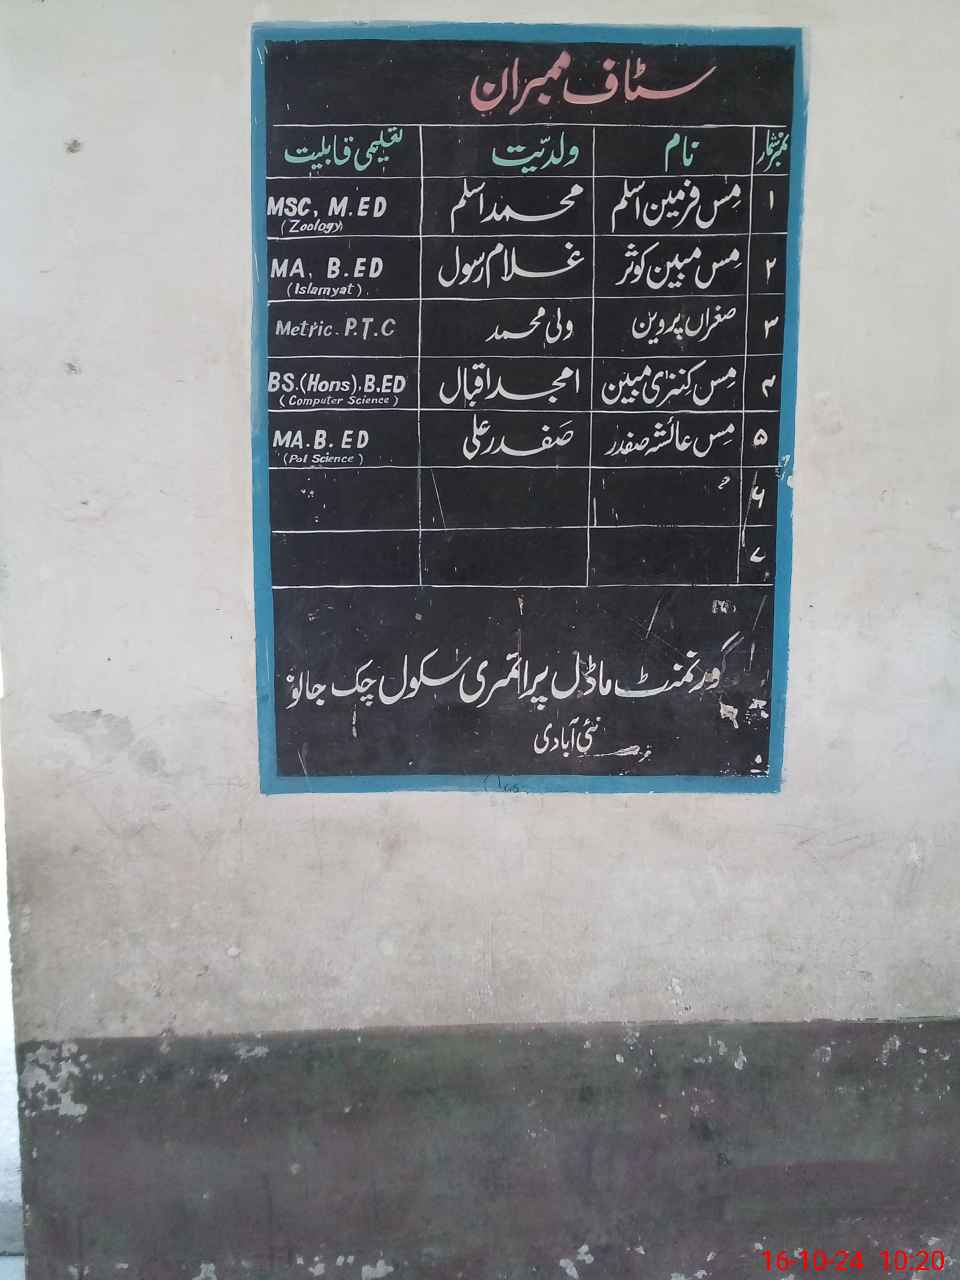 سٹاف ممبران
نمبر شمار نام ولدیت تعلیمی قابلیت
۱ مس فرمین اسلم محمد اسلم MSC, M.ED (Zoology)
۲ مس مبین کوثر غلام رسول MA, B.ED (Islamyat)
۳ صغراں پروین ولی محمد Metric. P.T.C
۴ مس مبین امجد اقبال BS.(Hons), B.ED (Computer Science)
۵ مس عائشہ صفدر صفدر علی MA. B. ED (Pol Science)
۶
۷
گورنمنٹ ماڈل پرائمری سکول چک جالو
نئی آبادی
16-10-24 10:20